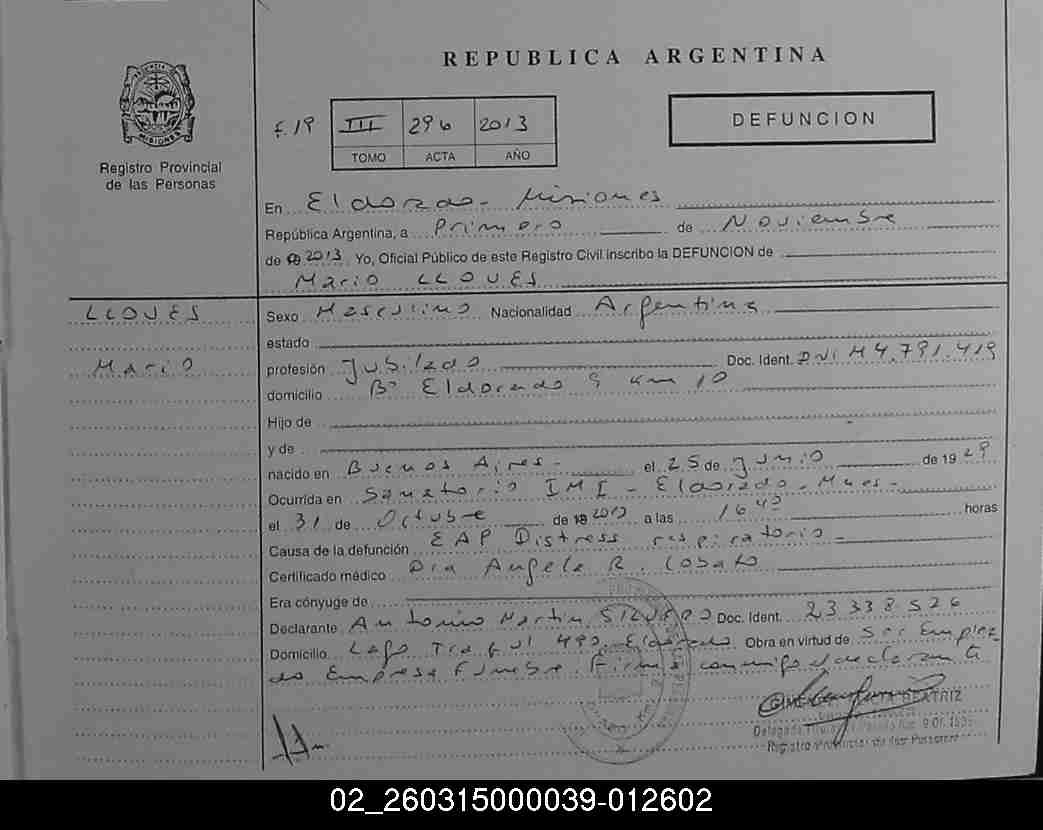 REPUBLICA ARGENTINA
PROVINCIA DE MISIONES
Registro Provincial
de las Personas
F. 19 III 296 2013
TOMO ACTA AÑO
DEFUNCION
En Eldorado - Misiones
República Argentina, a Primero de Noviembre
de 2013 Yo, Oficial Público de este Registro Civil inscribo la DEFUNCION de
Mario LLOVES
LLOVES
Mario
Sexo Masculino Nacionalidad Argentina
estado
profesión Jubilado Doc. Ident. DNI M4.791.419
domicilio Bº Eldorado 9 km 10
Hijo de
y de
nacido en Buenos Aires - el 25 de Junio de 1929
Ocurrida en Sanatorio IMI - Eldorado - Mnes -
el 31 de Octubre de 2013 a las 16 40 horas
Causa de la defunción EAP Distress respiratorio -
Certificado médico Dra Angela R. Lobato
Era cónyuge de
Declarante Antonio Martin Doc. Ident. 23338526
Domicilio Lago 490 Eldorado Obra en virtud de Ser Emplea
do Empresa Funebre. Firma conmigo el declarante
GIMENEZ BEATRIZ
Delegada Titular
Registro Provincial de las Personas
02_260315000039-012602